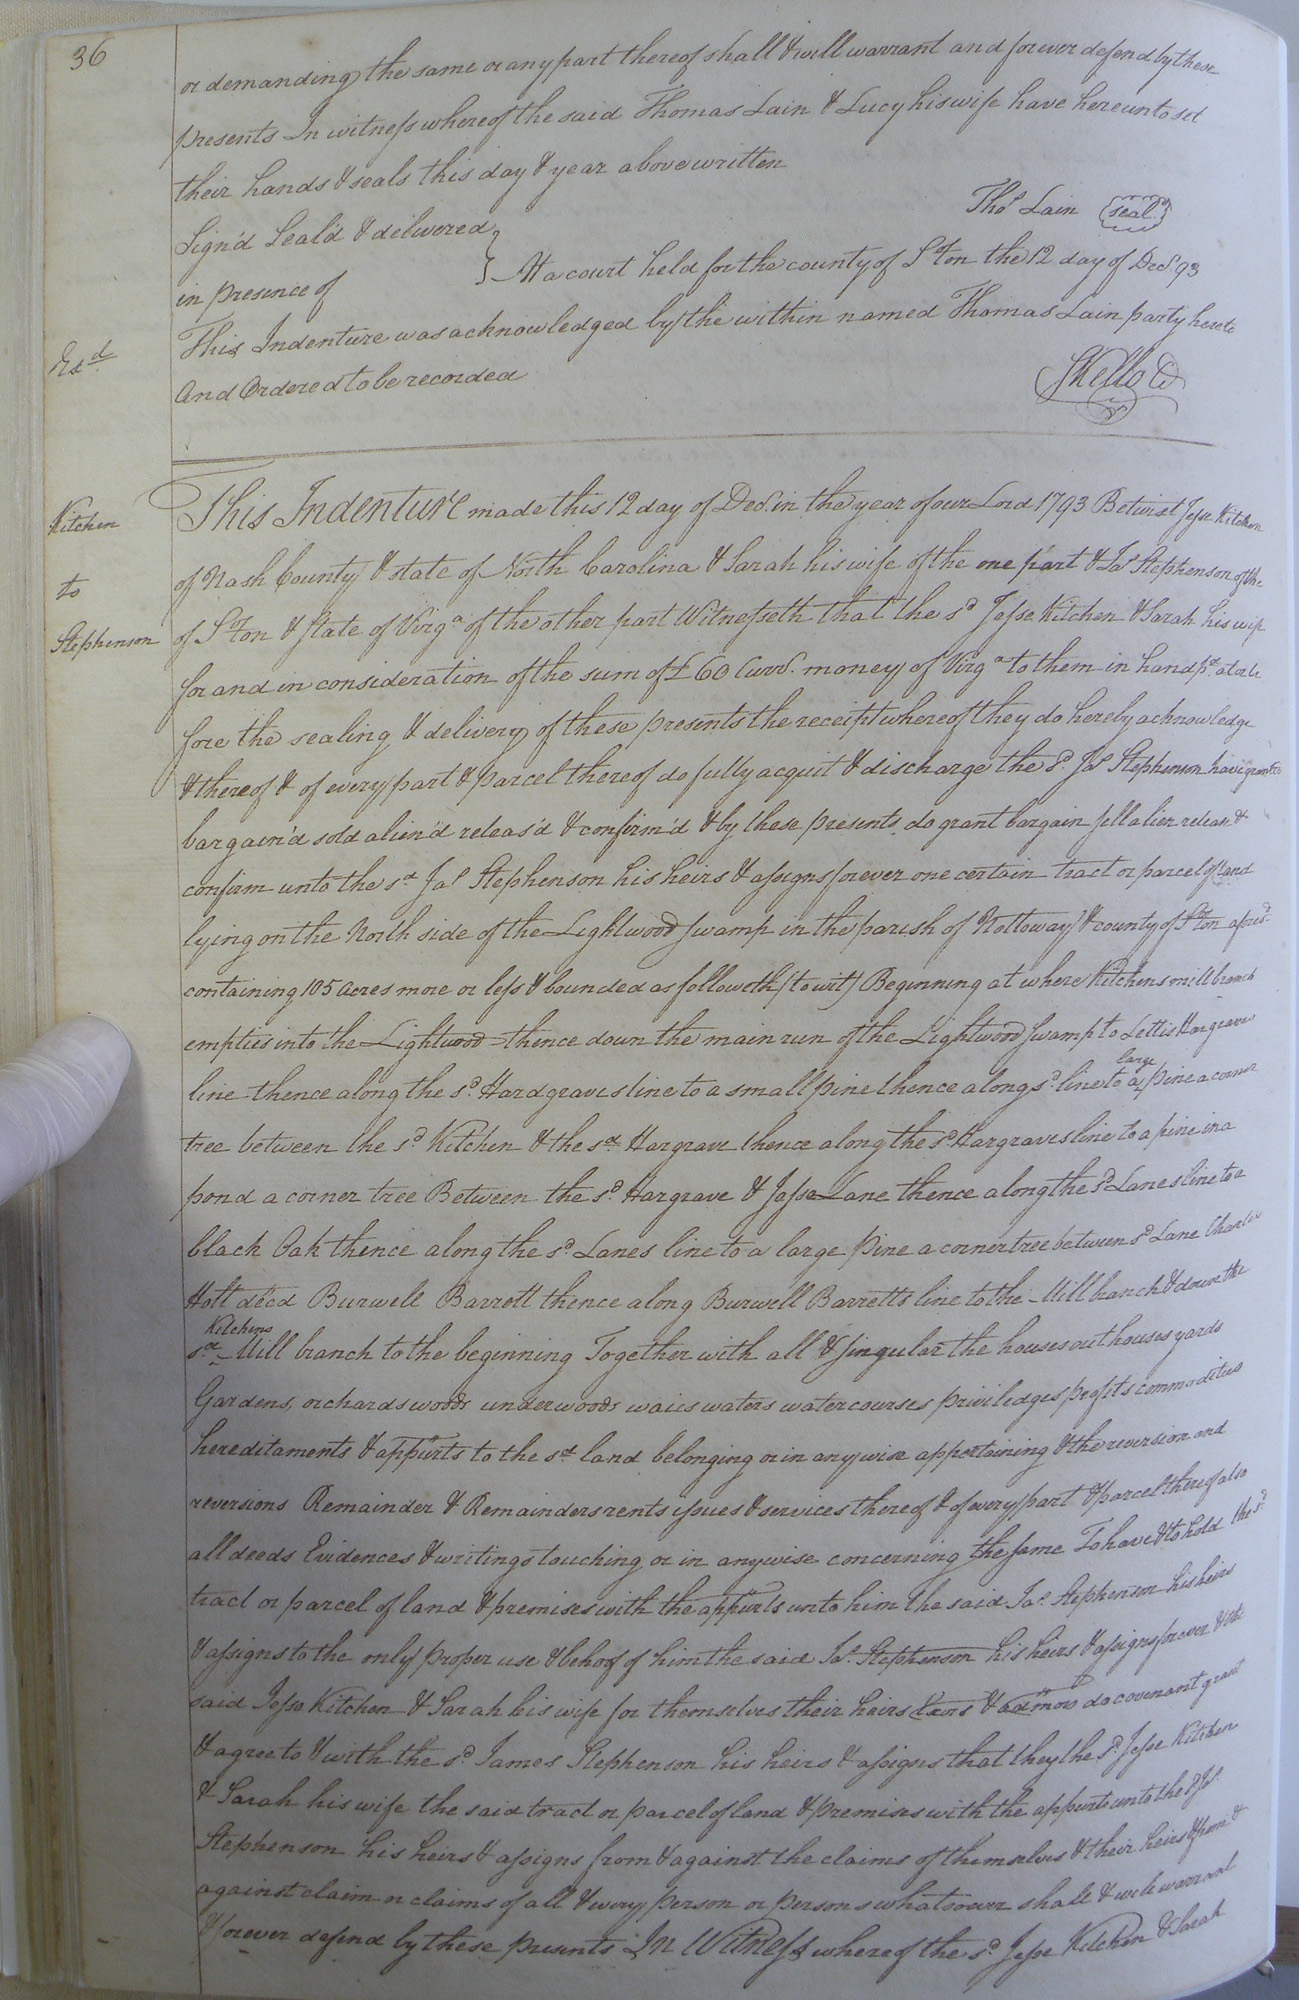 36
or demanding the same or any part thereof shall & will warrant and forever defend by these
presents In witness whereof the said Thomas Lain & Lucy his wife have hereunto set
their hands & seals this day & year above written
Thos Lain (seal)
Sign'd Seal'd & delivered
in presence of
At a court held for the county of Sºton the 12 day of Decr. 93
This Indenture was acknowledged by the within named Thomas Lain party hereto
And Ordered to be recorded
Exd.
SKello Cl
Kitchen
to
Stephenson
This Indenture made this 12 day of Decr. in the year of our Lord 1793 Betwixt Jesse Kitchen
of Nash County & state of North Carolina & Sarah his wife of the one part & Jas Stephenson of the
of Sºton & State of Virga. of the other part Witnesseth that the sd. Jesse Kitchen & Sarah his wife
for and in consideration of the sum of £60 Curr. money of Virga to them in hand pd. at or be
fore the sealing & delivery of these presents the receipt whereof they do hereby acknowledge
& thereof & of every part & parcel thereof do fully acquit & discharge the sd. Jas. Stephenson have granted
bargain'd sold alien'd releas'd & confirm'd & by these presents do grant bargain sell alien release &
confirm unto the sd. Jas. Stephenson his heirs & assigns forever one certain tract or parcel of land
lying on the North side of the Lightwood swamp in the parish of Nottoway & county of Sºton aforesd.
containing 105 acres more or less & bounded as followeth (to wit) Beginning at where Kitchens mill branch
empties into the Lightwood thence down the main run of the Lightwood Swamp to Lettis Hargraves
line thence along the sd. Hardgraves line to a small pine thence along sd. line to a large pine a corner
tree between the sd. Kitchen & the sd. Hargrave thence along the sd. Hargraves line to a pine in a
pond a corner tree Between the sd. Hargrave & Jesse Lane thence along the sd. Lanes line to a
black Oak thence along the sd. Lanes line to a large Pine a corner tree between sd. Lane Charles
Holt dec'd Burwell Barrett thence along Burwell Barretts line to the Mill branch & down the
sd. Kitchens Mill branch to the beginning Together with all & singular the houses outhouses yards
Gardens, orchards woods underwoods waies waters watercourses priviledges profits commodities
hereditaments & appurts to the sd. land belonging or in any wise appertaining & the reversion and
reversions Remainder & Remainders rents issues & services thereof & of every part & parcel thereof also
all deeds Evidences & writings touching or in anywise concerning the same To have & to hold the sd.
tract or parcel of land & premises with the appurts unto him the said Jas. Stephenson his heirs
& assigns to the only proper use & behoof of him the said Jas. Stephenson his heirs & assigns forever & the
said Jesse Kitchen & Sarah his wife for themselves their heirs Exors & admors do covenant grant
& agree to & with the sd. James Stephenson his heirs & assigns that they the sd. Jesse Kitchen
& Sarah his wife the said tract or parcel of land & premises with the appurts unto the sd Jas.
Stephenson his heirs & assigns from & against the claims of themselves & their heirs & from &
against claim or claims of all & every person or persons whatsoever shall & will warrant
& forever defend by these presents In Witness whereof the sd. Jesse Kitchen & Sarah